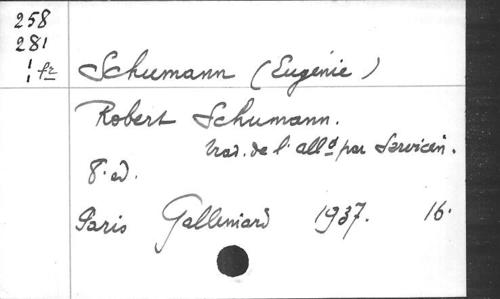 258
281
! fr
Schumann (Eugénie)
Robert Schumann.
Trad. de l'alld par Servicen.
8. ed.
Paris Gallimard 1937. 16.